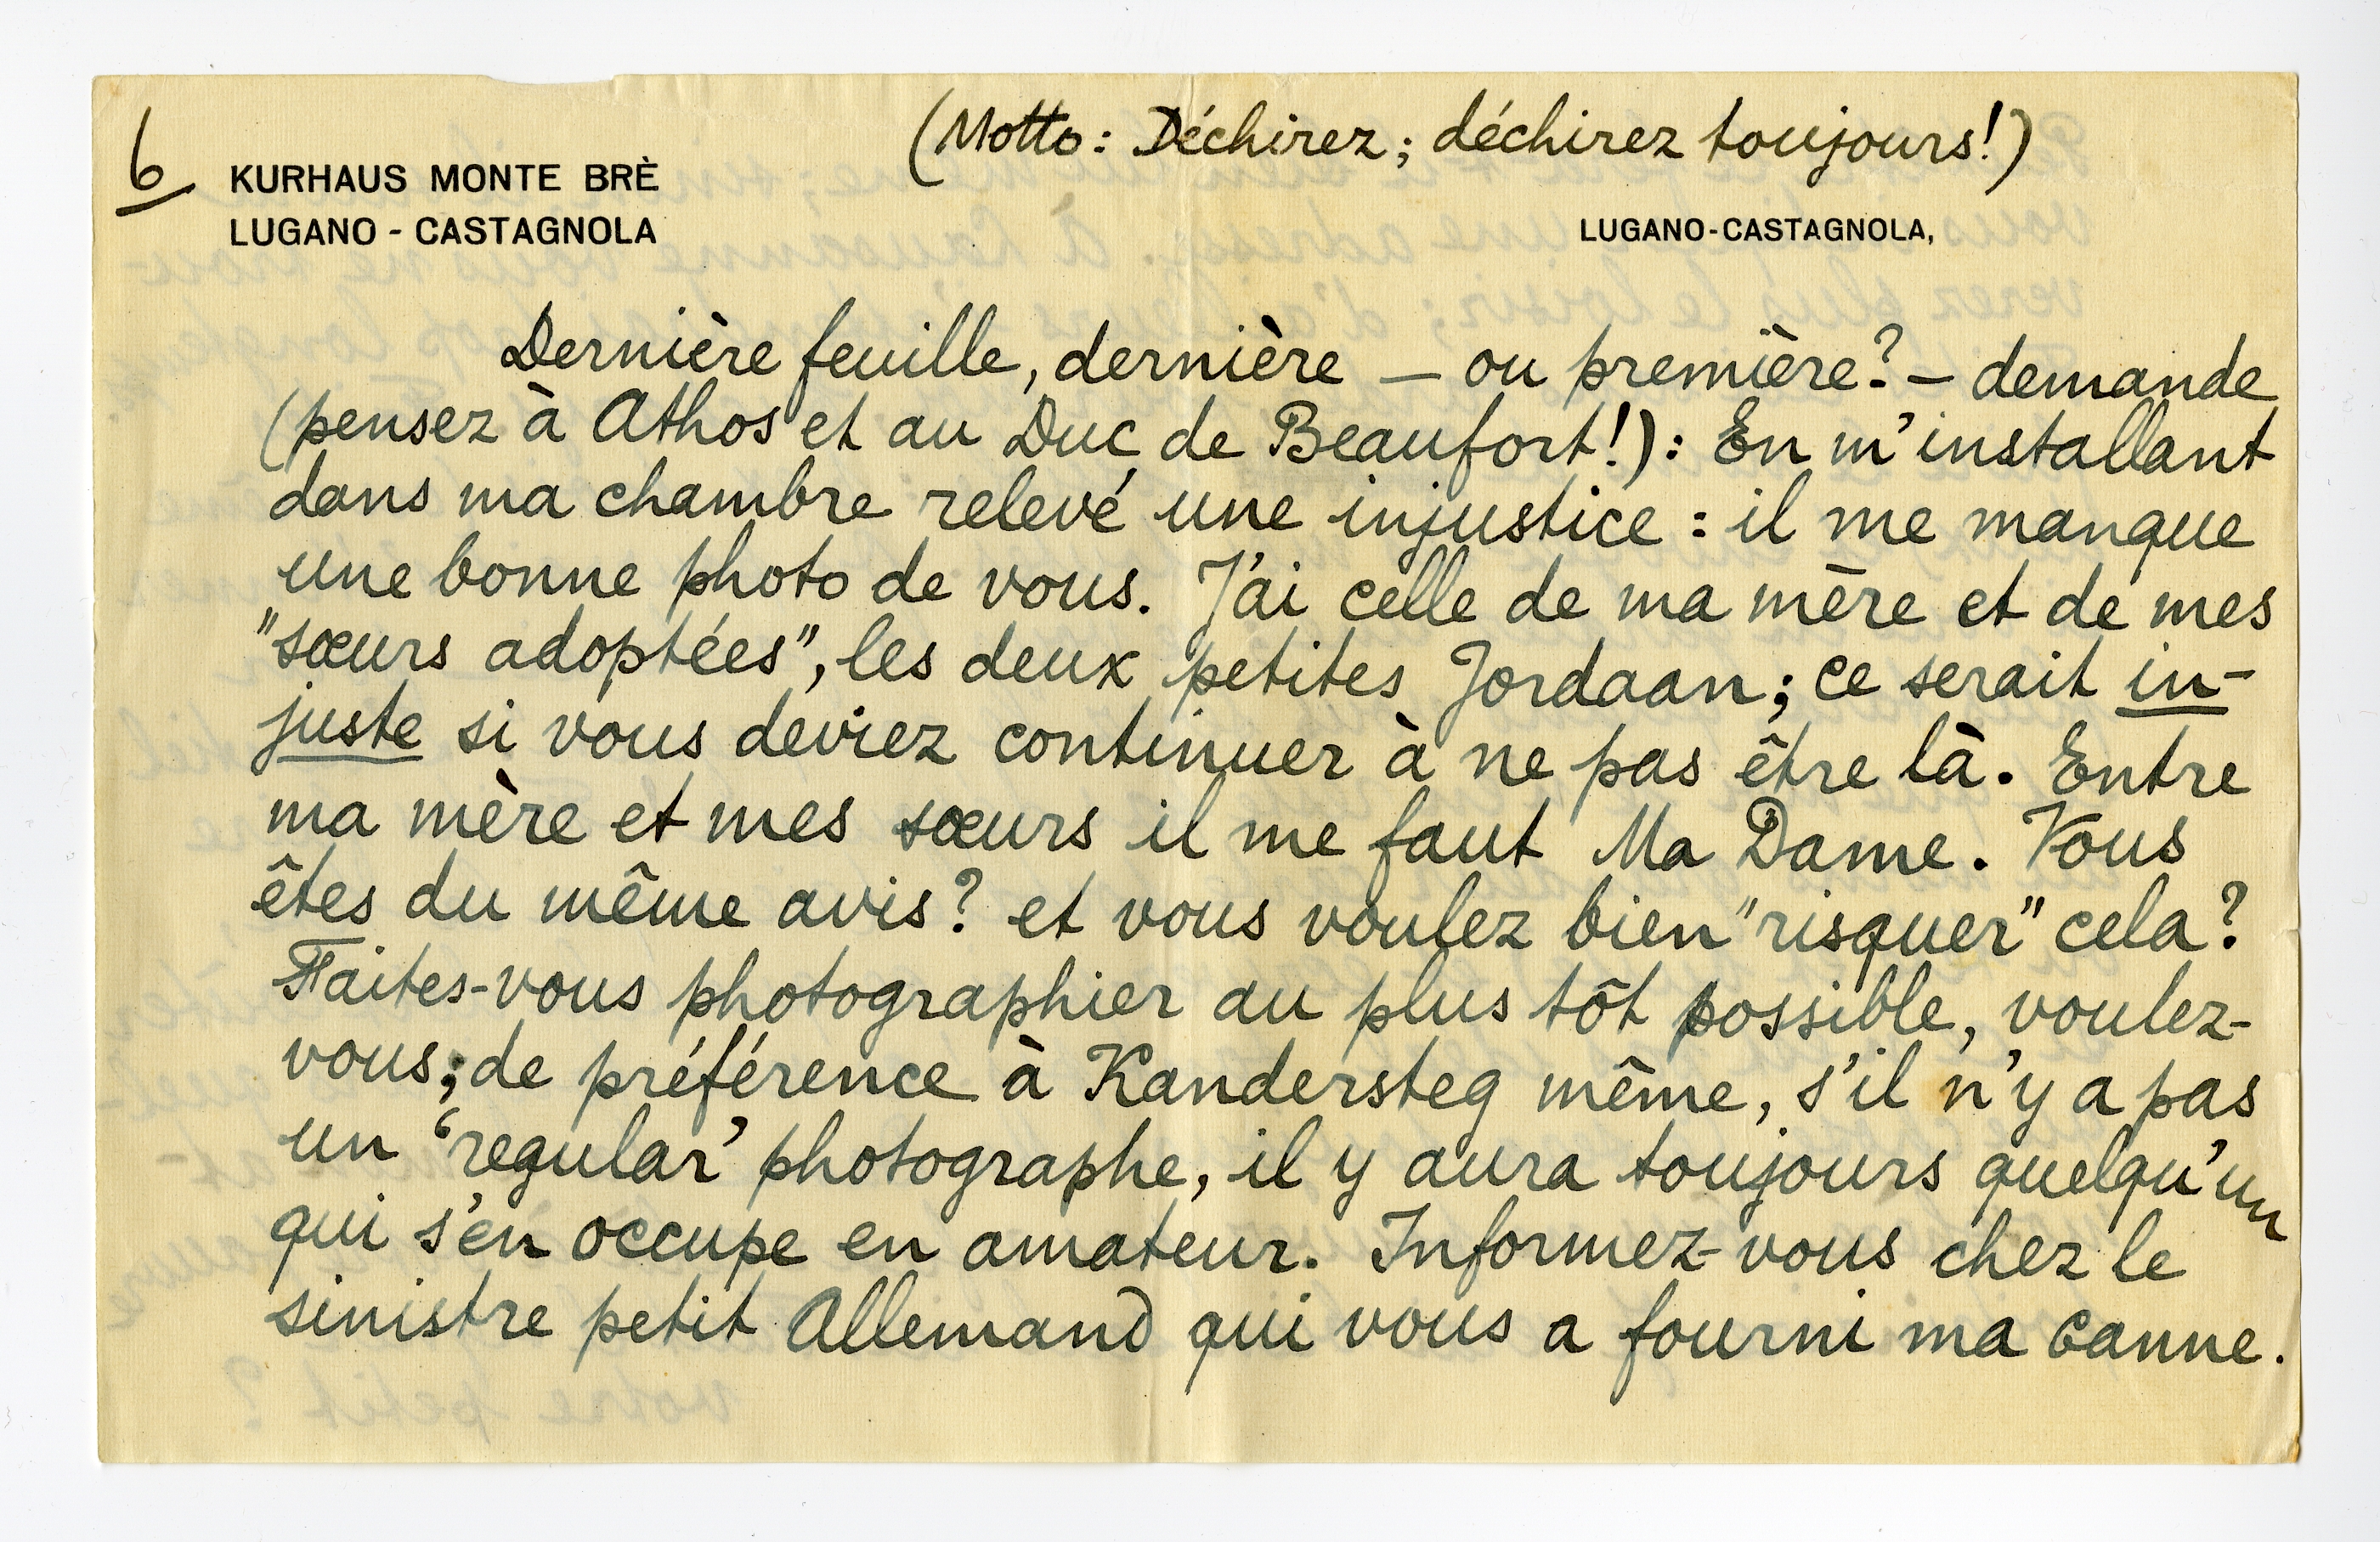 6
(Motto: Déchirez; déchirez toujours!)
KURHAUS MONTE BRÈ
LUGANO - CASTAGNOLA
LUGANO-CASTAGNOLA,
Dernière feuille, dernière — ou première? — demande
(pensez à Athos et au Duc de Beaufort!): En m'installant
dans ma chambre relevé une injustice: il me manque
une bonne photo de vous. J'ai celle de ma mère et de mes
"sœurs adoptées", les deux petites Jordaan; ce serait in-
juste si vous deviez continuer à ne pas être là. Entre
ma mère et mes sœurs il me faut Ma Dame. Vous
êtes du même avis? et vous voulez bien "risquer" cela?
Faites-vous photographier au plus tôt possible, voulez-
vous; de préférence à Kandersteg même, s'il n'y a pas
un 'regular' photographe, il y aura toujours quelqu'un
qui s'en occupe en amateur. Informez-vous chez le
sinistre petit Allemand qui vous a fourni ma canne.